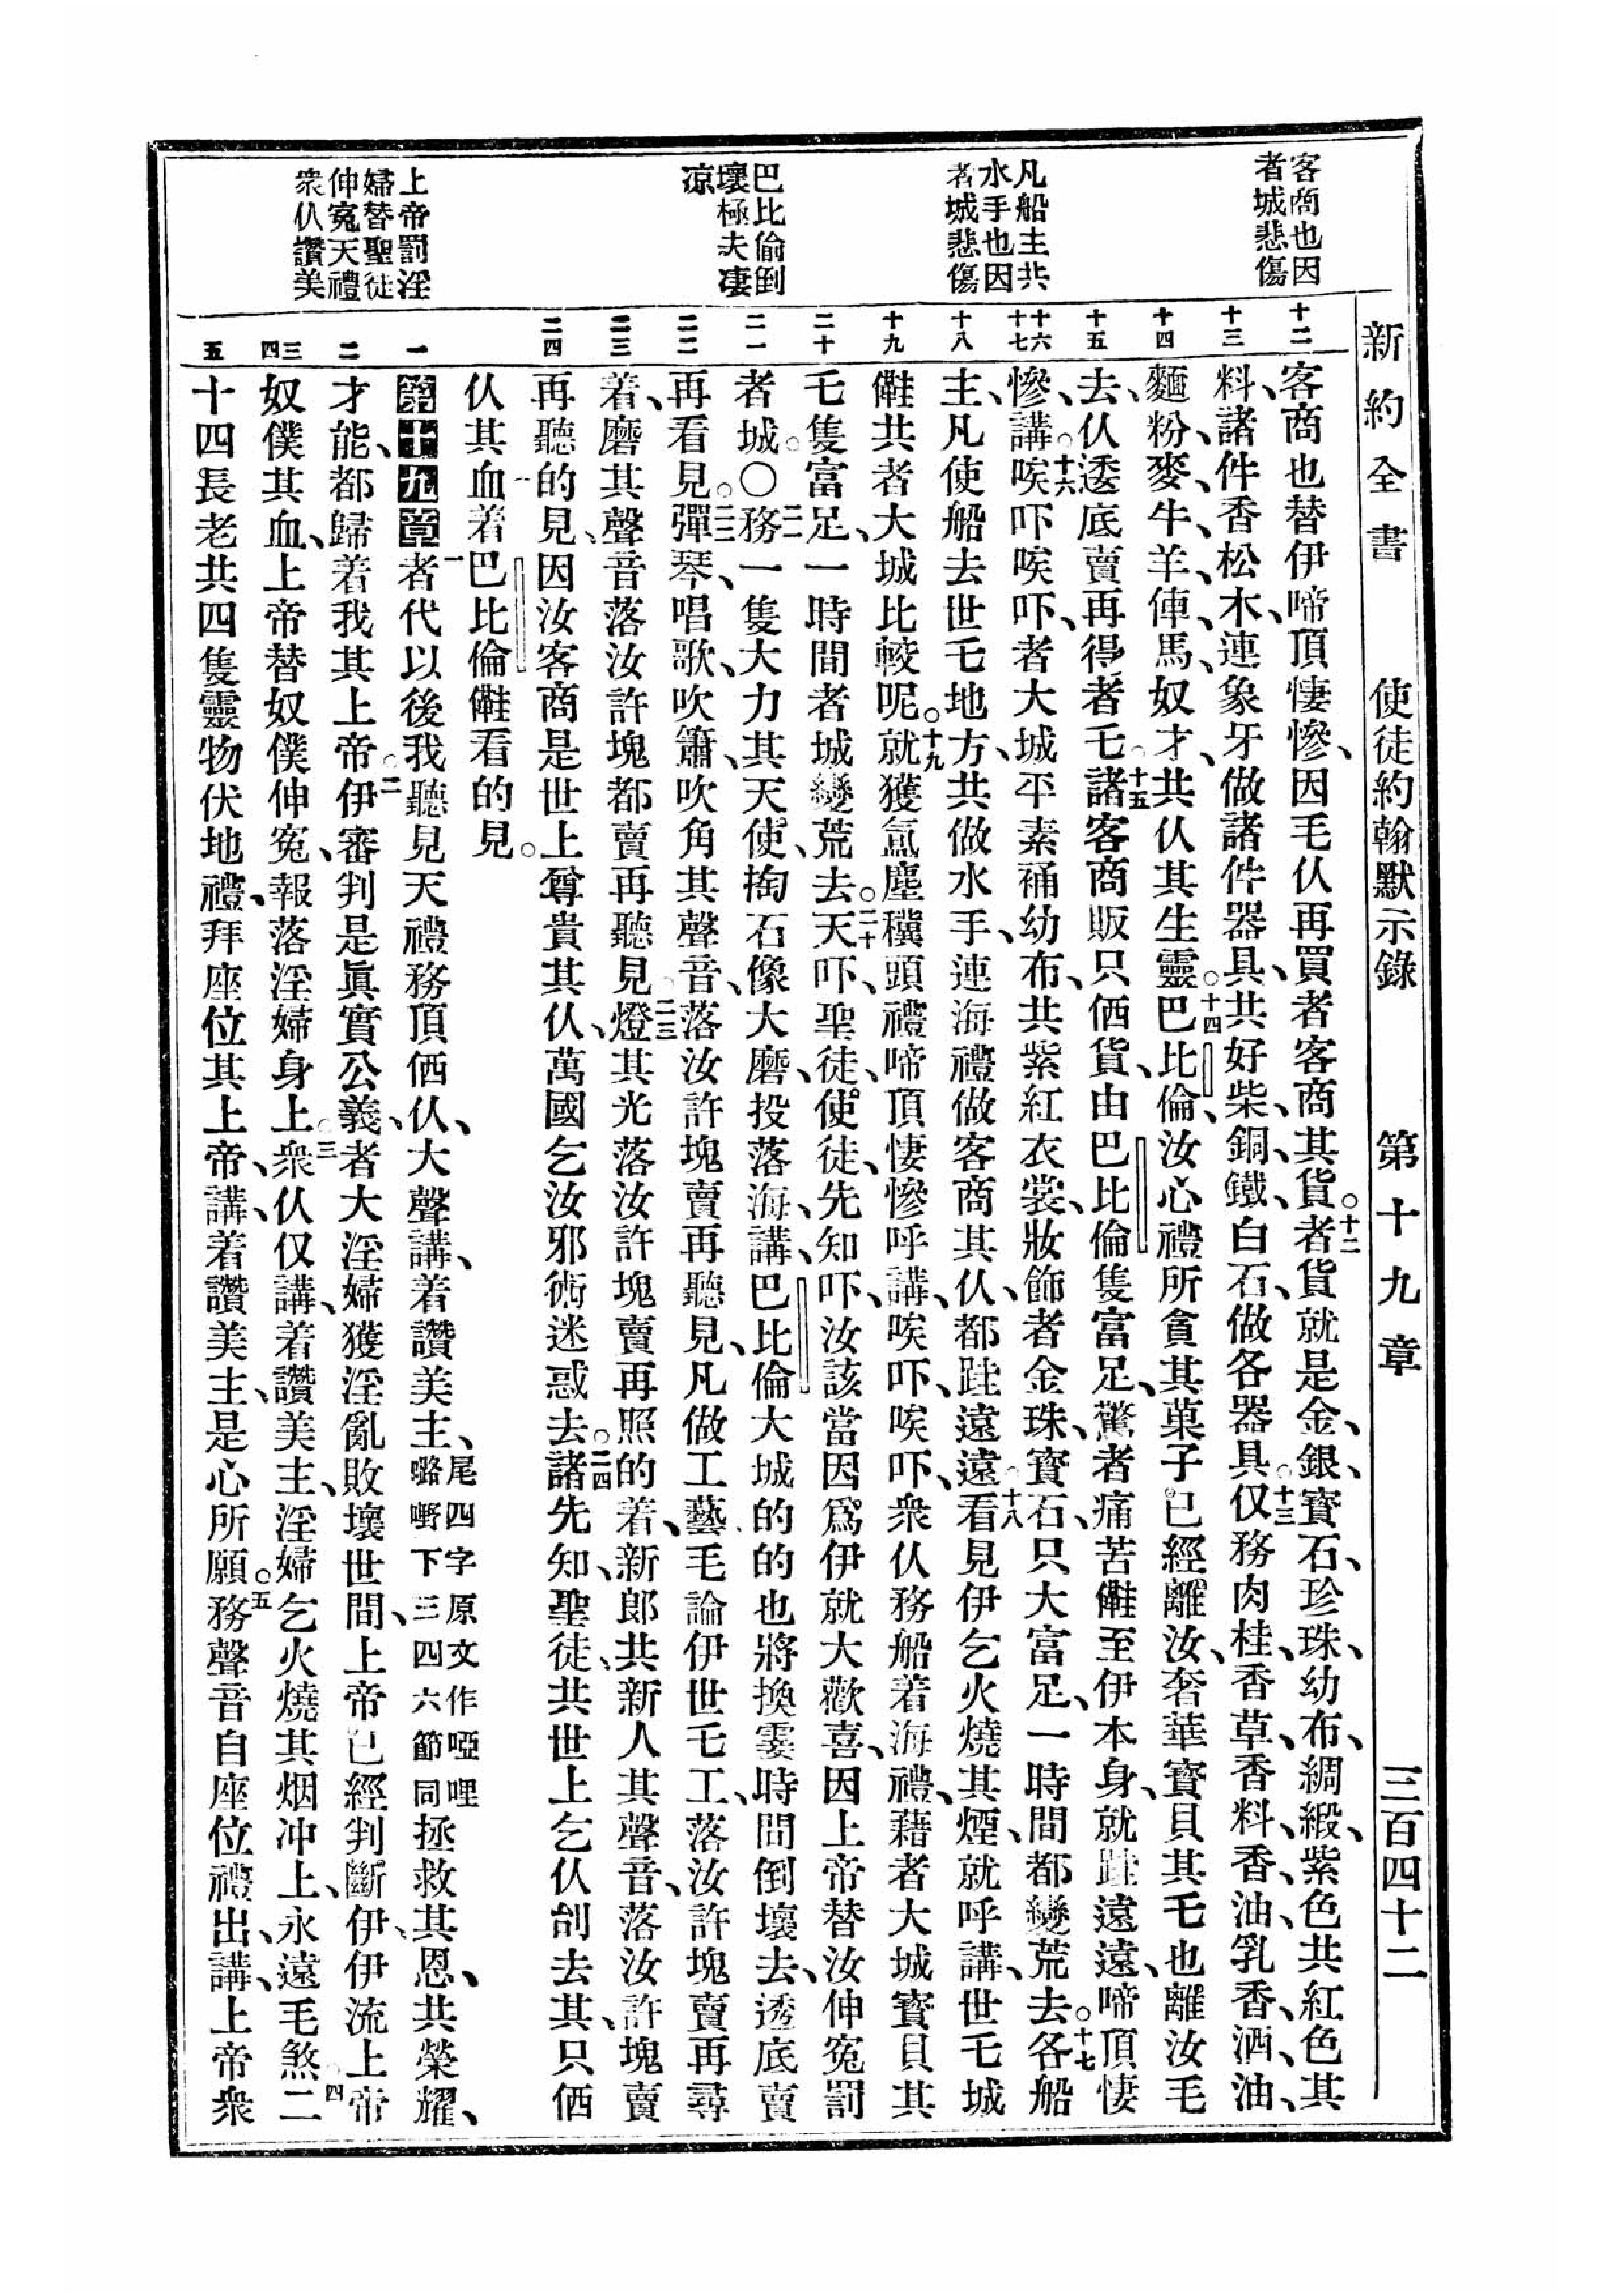 新約全書　使徒約翰默示錄　第十九章　三百四十二
客商也因
者城悲傷
凡船主共
水手也因
者城悲傷
巴比倫倒
壞極夫凄
凉
上帝罰淫
婦替聖徒
伸寃天禮
衆仸讚美
十二
十三
十四
十五
十六
十七
十八
十九
二十
二一
二二
二三
二四
一
二
三
四
五
客商也替伊啼頂悽慘、因毛仸再買者客商其貨。十二者貨就是金、銀、寳石、珍珠、幼布、綢緞、紫色共紅色其
料、諸件香松木、連象牙做諸件器具、共好柴、銅、鐵、白石、做各器具。十三仅務肉桂、香草、香料、香油、乳香、酒、油、
麵粉、麥、牛、羊、俥、馬、奴才、共仸其生靈。十四巴比倫、汝心禮所貪其菓子、已經離汝、奢華寳貝其乇也離汝毛
去、仸逶底賣再得者乇。十五諸客商販只俩貨、由巴比倫隻富足、驚者痛苦儺至伊本身、就𨂿遠遠、啼頂悽
慘、講。十六唉吓唉吓、者大城平素裲幼布、共紫紅衣裳、妝飾者金珠、寳石、只大富足、一時間都變荒去。十七各船
主、凡使船去世乇地方、共做水手、連海禮做客商其仸、都𨂿遠遠。十八看見伊乞火燒其煙、就呼講、世乇城
儺共者大城比較呢。十九就獲氲塵穬頭禮、啼頂悽慘呼講、唉吓、唉吓、衆仸務船着海禮、藉者大城寳貝其
乇隻富足、一時間者城變荒去。二十天吓、聖徒、使徒、先知吓、汝該當因爲伊就大歡喜、因上帝替汝伸寃罰
者城。〇二一務一隻大力其天使、掏石像大磨、投落海、講、巴比倫大城的的也將換霎時間倒壞去、透底賣
再看見。二二彈琴、唱歌、吹簫、吹角其聲音、落汝許塊賣再聽見、凡做工藝、毛論伊世乇工、落汝許塊賣再尋
着、磨其聲音落汝許塊都賣再聽見。二三燈其光落汝許塊賣再照的着、新郎共新人其聲音、落汝許塊賣
再聽的見、因汝客商是世上尊貴其仸、萬國乞汝邪術迷惑去。二四諸先知、聖徒、共世上乞仸刣去其、只俩
仸其血着巴比倫儺看的見。
第十九章 一者代以後我聽見天禮務頂俩仸、大聲講、着讚美主、尾四字原文作啞哩嚕嘢下三四六節同拯救其恩、共榮耀、
才能、都歸着我其上帝。二伊審判是眞實公義、者大淫婦獲淫亂敗壞世間、上帝已經判斷伊、伊流上帝
奴僕其血、上帝替奴僕伸寃、報落淫婦身上。三衆仸仅講、着讚美主、淫婦乞火燒其烟冲上、永遠毛煞。四二
十四長老共四隻靈物伏地禮、拜座位其上帝、講、着讚美主、是心所願。五務聲音自座位禮出、講、上帝衆